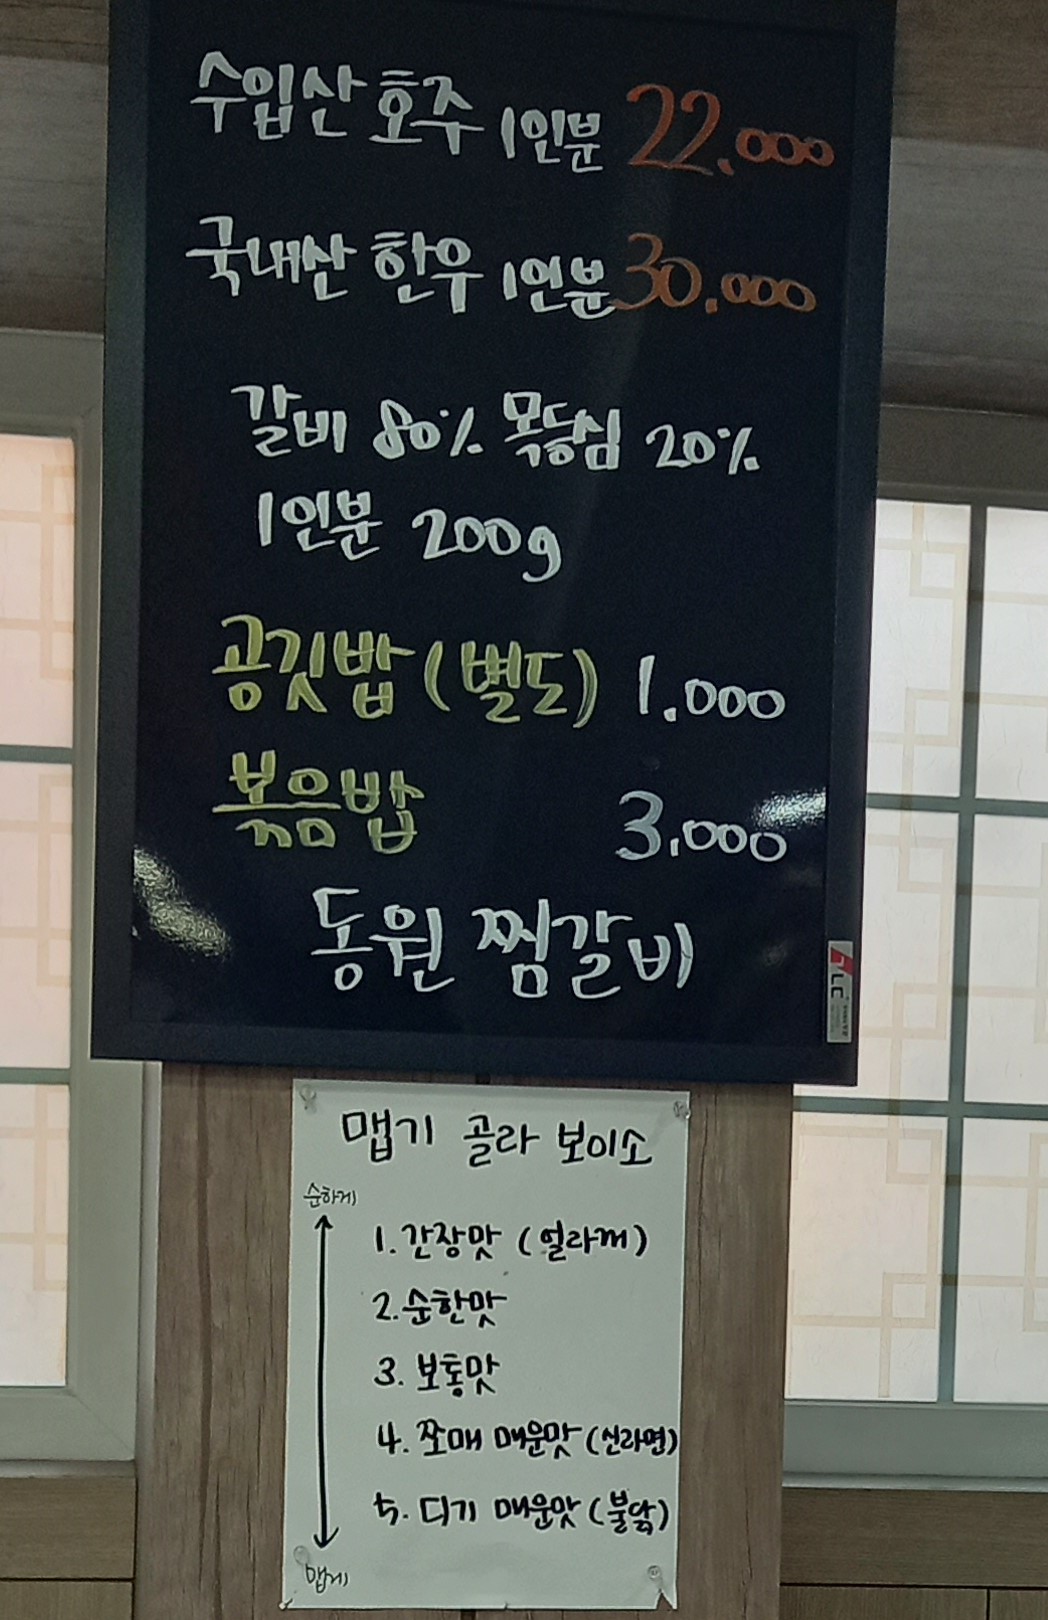 수입산 호주 1인분 22.000
국내산 한우 1인분 30.000
갈비 80% 목등심 20%
1인분 200g
공깃밥 (별도) 1.000
볶음밥 3.000
동원 찜갈비
맵기 골라 보이소
순하게
1. 간장맛 (얼라께)
2. 순한맛
3. 보통맛
4. 쪼매 매운맛 (신라면)
5. 디기 매운맛 (불닭)
맵게